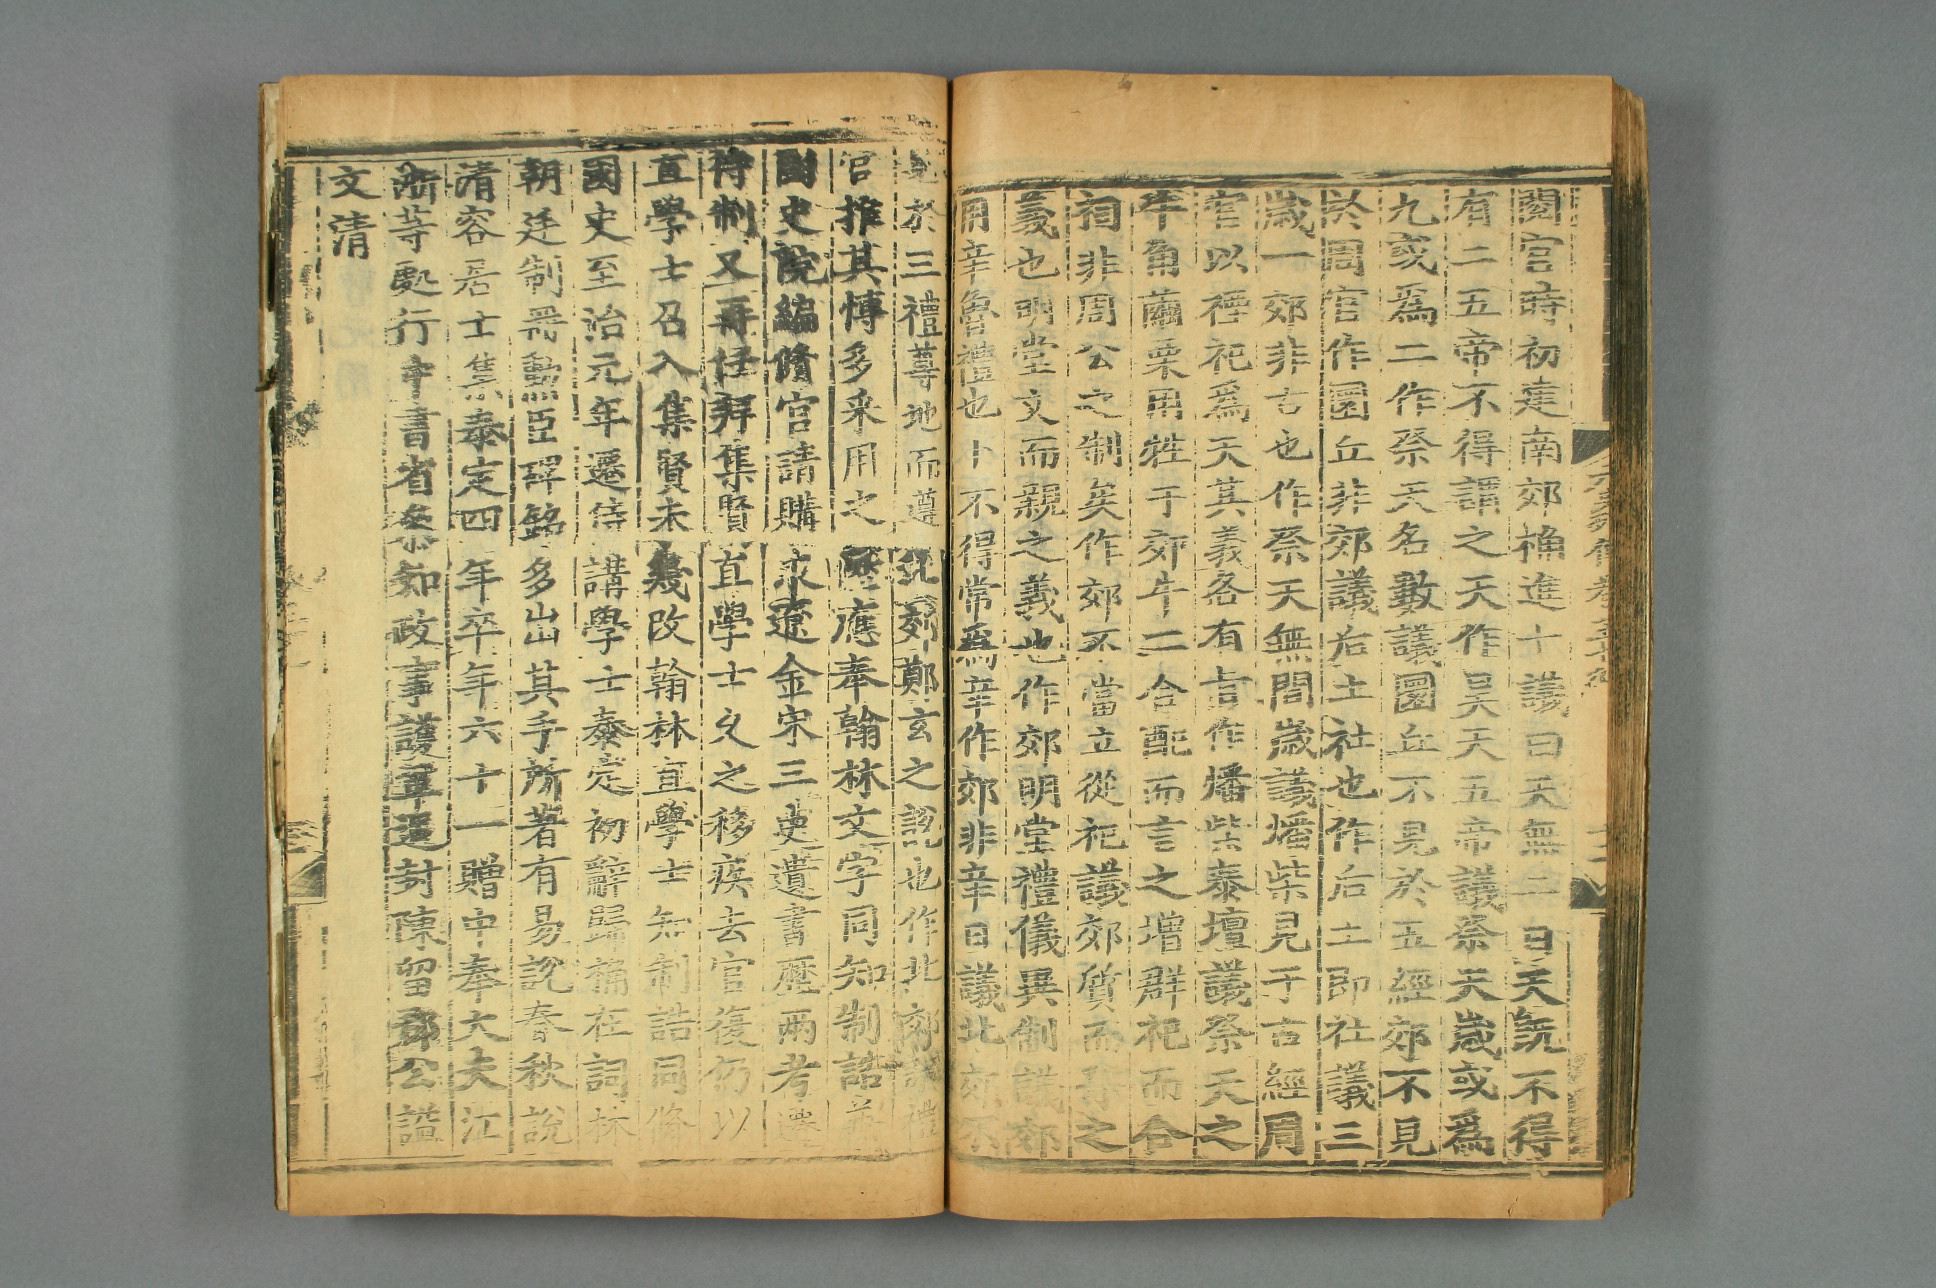 閣官時初建南郊桷進十議曰天無二日天旣不得
有二五帝不得謂之天作昊天五帝議祭天歲或爲
九或爲二作祭天名數議圜丘不見於五經郊不見
於周官作圜丘非郊議后土社也作后土卽社議三
歲一郊非古也作祭天無間歲議燔柴見于古經周
官以禋祀爲天其義各有旨作燔柴泰壇議祭天之
牛角繭栗用牲于郊牛二合配而言之增群祀而合
祠非周公之制矣作郊不當立從祀議郊質而尊之
義也明堂文而親之義也作郊明堂禮儀異制議郊
用辛魯禮也卜不得常爲辛作郊非辛日議北郊不
見於三禮尊地而遵北郊鄭玄之說也作北郊議禮
官推其愽多采用之陞應奉翰林文字同知制誥兼
國史院編脩官請購求遼金宋三史遺書歷兩考遷
待制又再任拜集賢直學士久之移疾去官復仍以
直學士召入集賢未幾改翰林直學士知制誥同脩
國史至治元年遷侍講學士泰定初辭歸桷在詞林
朝廷制冊勲臣碑銘多出其手所著有易說春秋說
淸容居士集泰定四年卒年六十一贈中奉大夫江
浙等䖏行中書省叅知政事護軍追封陳留郡公謚
文清